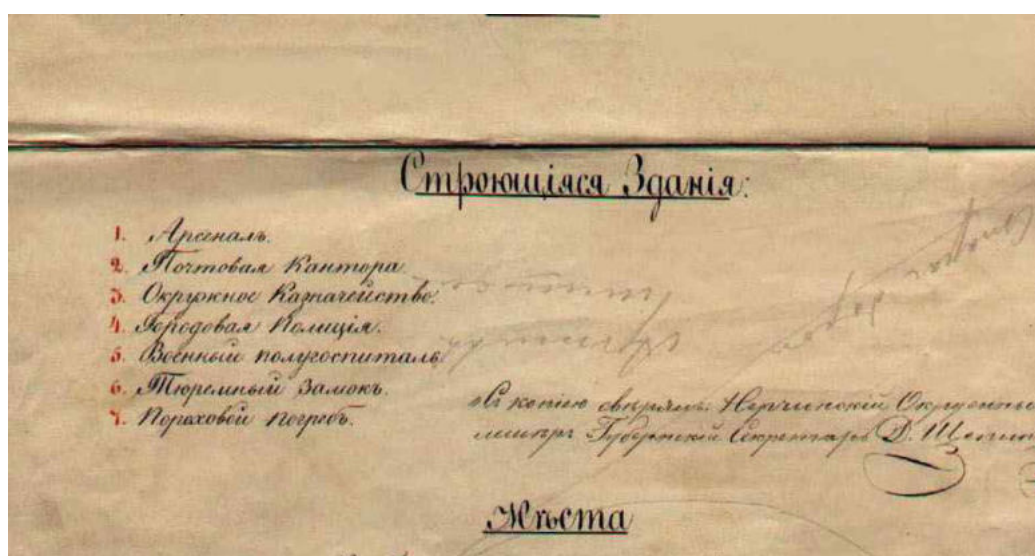 Строющіяся Зданія:
1. Арсеналъ.
2. Почтовая Кантора
3. Окружное Казначейство.
4. Городовая Полиція.
5. Военный полугоспиталь
6. Тюремный Замокъ.
7. Пороховой погребъ.
Съ копіею свѣрялъ: Нерчинскій Окружный
Губернскій Секретарь Д.
Мѣста